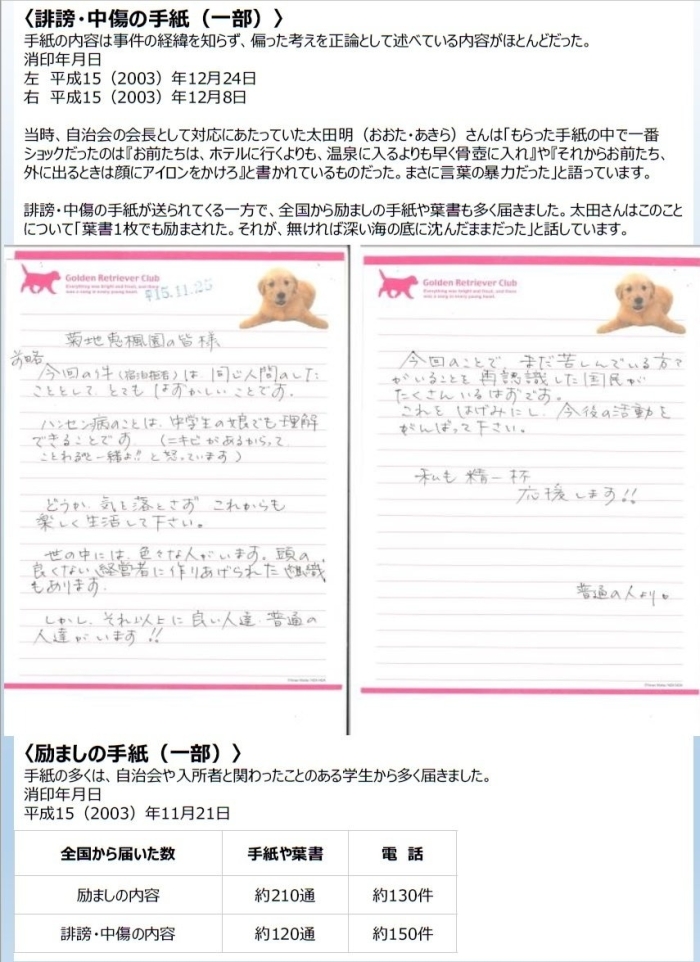 〈誹謗・中傷の手紙（一部）〉
手紙の内容は事件の経緯を知らず、偏った考えを正論として述べている内容がほとんどだった。
消印年月日
左 平成15（2003）年12月24日
右 平成15（2003）年12月8日
当時、自治会の会長として対応にあたっていた太田明（おおた・あきら）さんは「もらった手紙の中で一番
ショックだったのは『お前たちは、ホテルに行くよりも、温泉に入るよりも早く骨壺に入れ』や『それからお前たち、
外に出るときは顔にアイロンをかけろ』と書かれているものだった。まさに言葉の暴力だった」と語っています。
誹謗・中傷の手紙が送られてくる一方で、全国から励ましの手紙や葉書も多く届きました。太田さんはこのこと
について「葉書1枚でも励まされた。それが、無ければ深い海の底に沈んだままだった」と話しています。
Golden Retriever Club
Everything was bright and fresh, and there
was a song in every young heart.
15.11.25
菊地恵楓園の皆様
前略
今回の件（宿泊拒否）は、同じ人間のした
こととして、とてもはずかしいことです。
ハンセン病のことは、中学生の娘でも理解
できることです （ニキビがあるからって
ことわると一緒よ!! と怒っています）
どうか、気を落とさず これからも
楽しく生活して下さい。
世の中には、色々な人がいます。頭の
良くない経営者に作りあげられた組織
もあります。
しかし、それ以上に良い人達、普通の
人達がいます!!
Golden Retriever Club
Everything was bright and fresh, and there
was a song in every young heart.
今回のことで、まだ苦しんでいる方々
がいることを再認識した国民が
たくさんいるはずです。
これをはげみにし、今後の活動を
がんばって下さい。
私も精一杯
応援します!!
普通の人より。
〈励ましの手紙（一部）〉
手紙の多くは、自治会や入所者と関わったことのある学生から多く届きました。
消印年月日
平成15（2003）年11月21日
全国から届いた数 手紙や葉書 電 話
励ましの内容 約210通 約130件
誹謗・中傷の内容 約120通 約150件